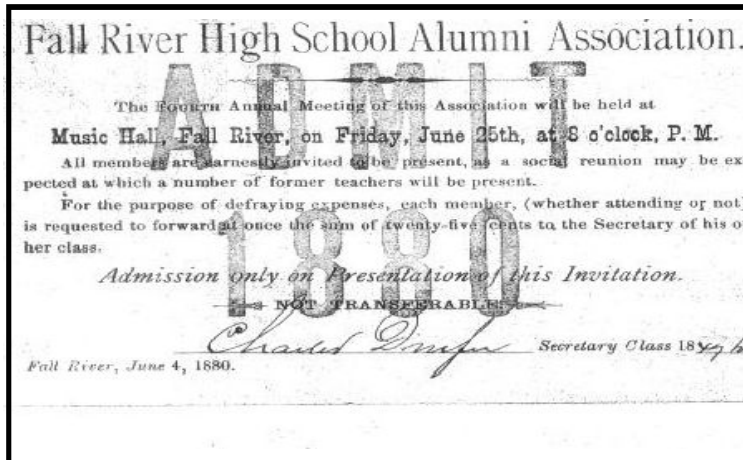 Fall River High School Alumni Association.
ADMIT
The Fourth Annual Meeting of this Association will be held at
Music Hall, Fall River, on Friday, June 25th, at 8 o'clock, P. M.
All members are earnestly invited to be present, as a social reunion may be ex
pected at which a number of former teachers will be present.
For the purpose of defraying expenses, each member, (whether attending or not)
is requested to forward at once the sum of twenty-five cents to the Secretary of his o
her class.
1880
Admission only on Presentation of this Invitation.
NOT TRANSFERABLE.
Charles Secretary Class 18
Fall River, June 4, 1880.